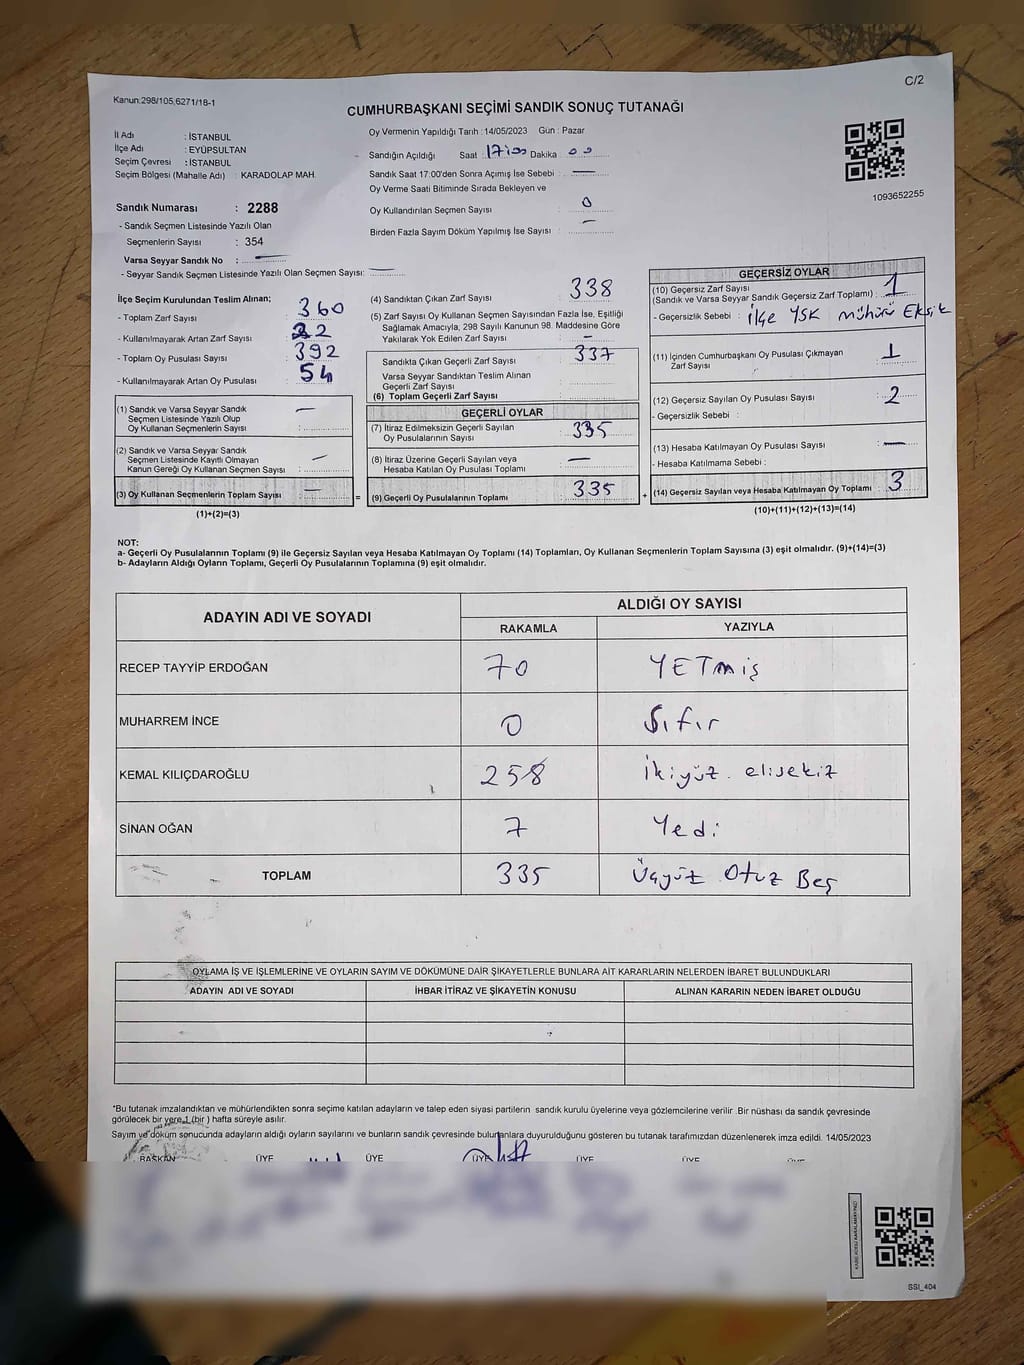 C/2
Kanun:298/105,6271/18-1
CUMHURBAŞKANI SEÇİMİ SANDIK SONUÇ TUTANAĞI
İl Adı : İSTANBUL
İlçe Adı : EYÜPSULTAN
Seçim Çevresi : İSTANBUL
Seçim Bölgesi (Mahalle Adı) : KARADOLAP MAH.
Sandık Numarası : 2288
- Sandık Seçmen Listesinde Yazılı Olan
Seçmenlerin Sayısı : 354
Varsa Seyyar Sandık No : —
- Seyyar Sandık Seçmen Listesinde Yazılı Olan Seçmen Sayısı: —
Oy Vermenin Yapıldığı Tarih : 14/05/2023 Gün : Pazar
Sandığın Açıldığı Saat : 17:00 Dakika 00
Sandık Saat 17:00'den Sonra Açımış İse Sebebi : —
Oy Verme Saati Bitiminde Sırada Bekleyen ve
Oy Kullandırılan Seçmen Sayısı : 0
Birden Fazla Sayım Döküm Yapılmış İse Sayısı : —
1093652255
İlçe Seçim Kurulundan Teslim Alınan;
- Toplam Zarf Sayısı : 360
- Kullanılmayarak Artan Zarf Sayısı : 22
- Toplam Oy Pusulası Sayısı : 392
- Kullanılmayarak Artan Oy Pusulası : 54
(1) Sandık ve Varsa Seyyar Sandık —
Seçmen Listesinde Yazılı Olup
Oy Kullanan Seçmenlerin Sayısı :
(2) Sandık ve Varsa Seyyar Sandık
Seçmen Listesinde Kayıtlı Olmayan —
Kanun Gereği Oy Kullanan Seçmen Sayısı :
(3) Oy Kullanan Seçmenlerin Toplam Sayısı : — =
(1)+(2)=(3)
(4) Sandıktan Çıkan Zarf Sayısı : 338
(5) Zarf Sayısı Oy Kullanan Seçmen Sayısından Fazla İse, Eşitliği
Sağlamak Amacıyla, 298 Sayılı Kanunun 98. Maddesine Göre
Yakılarak Yok Edilen Zarf Sayısı : —
Sandıkta Çıkan Geçerli Zarf Sayısı : 337
Varsa Seyyar Sandıktan Teslim Alınan
Geçerli Zarf Sayısı :
(6) Toplam Geçerli Zarf Sayısı :
GEÇERLİ OYLAR
(7) İtiraz Edilmeksizin Geçerli Sayılan
Oy Pusulalarının Sayısı : 335
(8) İtiraz Üzerine Geçerli Sayılan veya —
Hesaba Katılan Oy Pusulası Toplamı :
(9) Geçerli Oy Pusulalarının Toplamı : 335 +
GEÇERSİZ OYLAR
(10) Geçersiz Zarf Sayısı
(Sandık ve Varsa Seyyar Sandık Geçersiz Zarf Toplamı) : 1
- Geçersizlik Sebebi : ilçe YSK mühürü Eksik
(11) İçinden Cumhurbaşkanı Oy Pusulası Çıkmayan
Zarf Sayısı : 1
(12) Geçersiz Sayılan Oy Pusulası Sayısı : 2
- Geçersizlik Sebebi :
(13) Hesaba Katılmayan Oy Pusulası Sayısı : —
- Hesaba Katılmama Sebebi :
(14) Geçersiz Sayılan veya Hesaba Katılmayan Oy Toplamı : 3
(10)+(11)+(12)+(13)=(14)
NOT:
a- Geçerli Oy Pusulalarının Toplamı (9) ile Geçersiz Sayılan veya Hesaba Katılmayan Oy Toplamı (14) Toplamları, Oy Kullanan Seçmenlerin Toplam Sayısına (3) eşit olmalıdır. (9)+(14)=(3)
b- Adayların Aldığı Oyların Toplamı, Geçerli Oy Pusulalarının Toplamına (9) eşit olmalıdır.
ADAYIN ADI VE SOYADI ALDIĞI OY SAYISI
RAKAMLA YAZIYLA
RECEP TAYYİP ERDOĞAN 70 YETMİŞ
MUHARREM İNCE 0 Sıfır
KEMAL KILIÇDAROĞLU 258 ikiyüz elisekiz
SİNAN OĞAN 7 Yedi
TOPLAM 335 Üçyüz Otuz Beş
OYLAMA İŞ VE İŞLEMLERİNE VE OYLARIN SAYIM VE DÖKÜMÜNE DAİR ŞİKAYETLERLE BUNLARA AİT KARARLARIN NELERDEN İBARET BULUNDUKLARI
ADAYIN ADI VE SOYADI İHBAR İTİRAZ VE ŞİKAYETİN KONUSU ALINAN KARARIN NEDEN İBARET OLDUĞU
*Bu tutanak imzalandıktan ve mühürlendikten sonra seçime katılan adayların ve talep eden siyasi partilerin sandık kurulu üyelerine veya gözlemcilerine verilir .Bir nüshası da sandık çevresinde
görülecek bir yere 1 (bir ) hafta süreyle asılır.
Sayım ve döküm sonucunda adayların aldığı oyların sayılarını ve bunların sandık çevresinde bulunanlara duyurulduğunu gösteren bu tutanak tarafımızdan düzenlenerek imza edildi. 14/05/2023
BAŞKAN ÜYE ÜYE ÜYE ÜYE ÜYE ÜYE
SSI_404